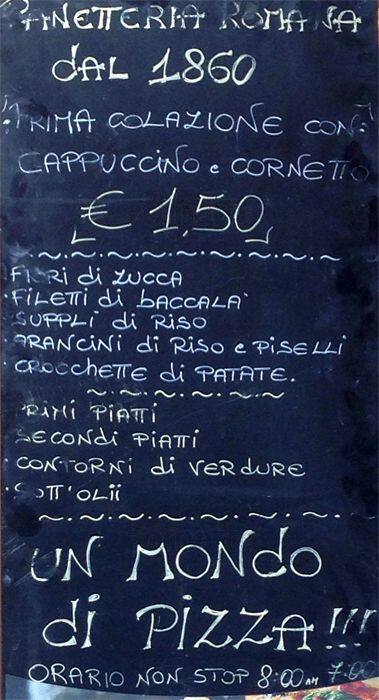 PANETTERIA ROMANA
DAL 1860
PRIMA COLAZIONE CON:
CAPPUCCINO e CORNETTO
€ 1,50
FIORI di ZUCCA
• FILETTI di BACCALA'
SUPPLI' di RISO
• ARANCINI di RISO e PISELLI
CROCCHETTE di PATATE.
PRIMI PIATTI
SECONDI PIATTI
• CONTORNI di VERDURE
• SOTT'OLII
UN MONDO
di PIZZA!!!
ORARIO NON STOP 8:00 AM 7:00